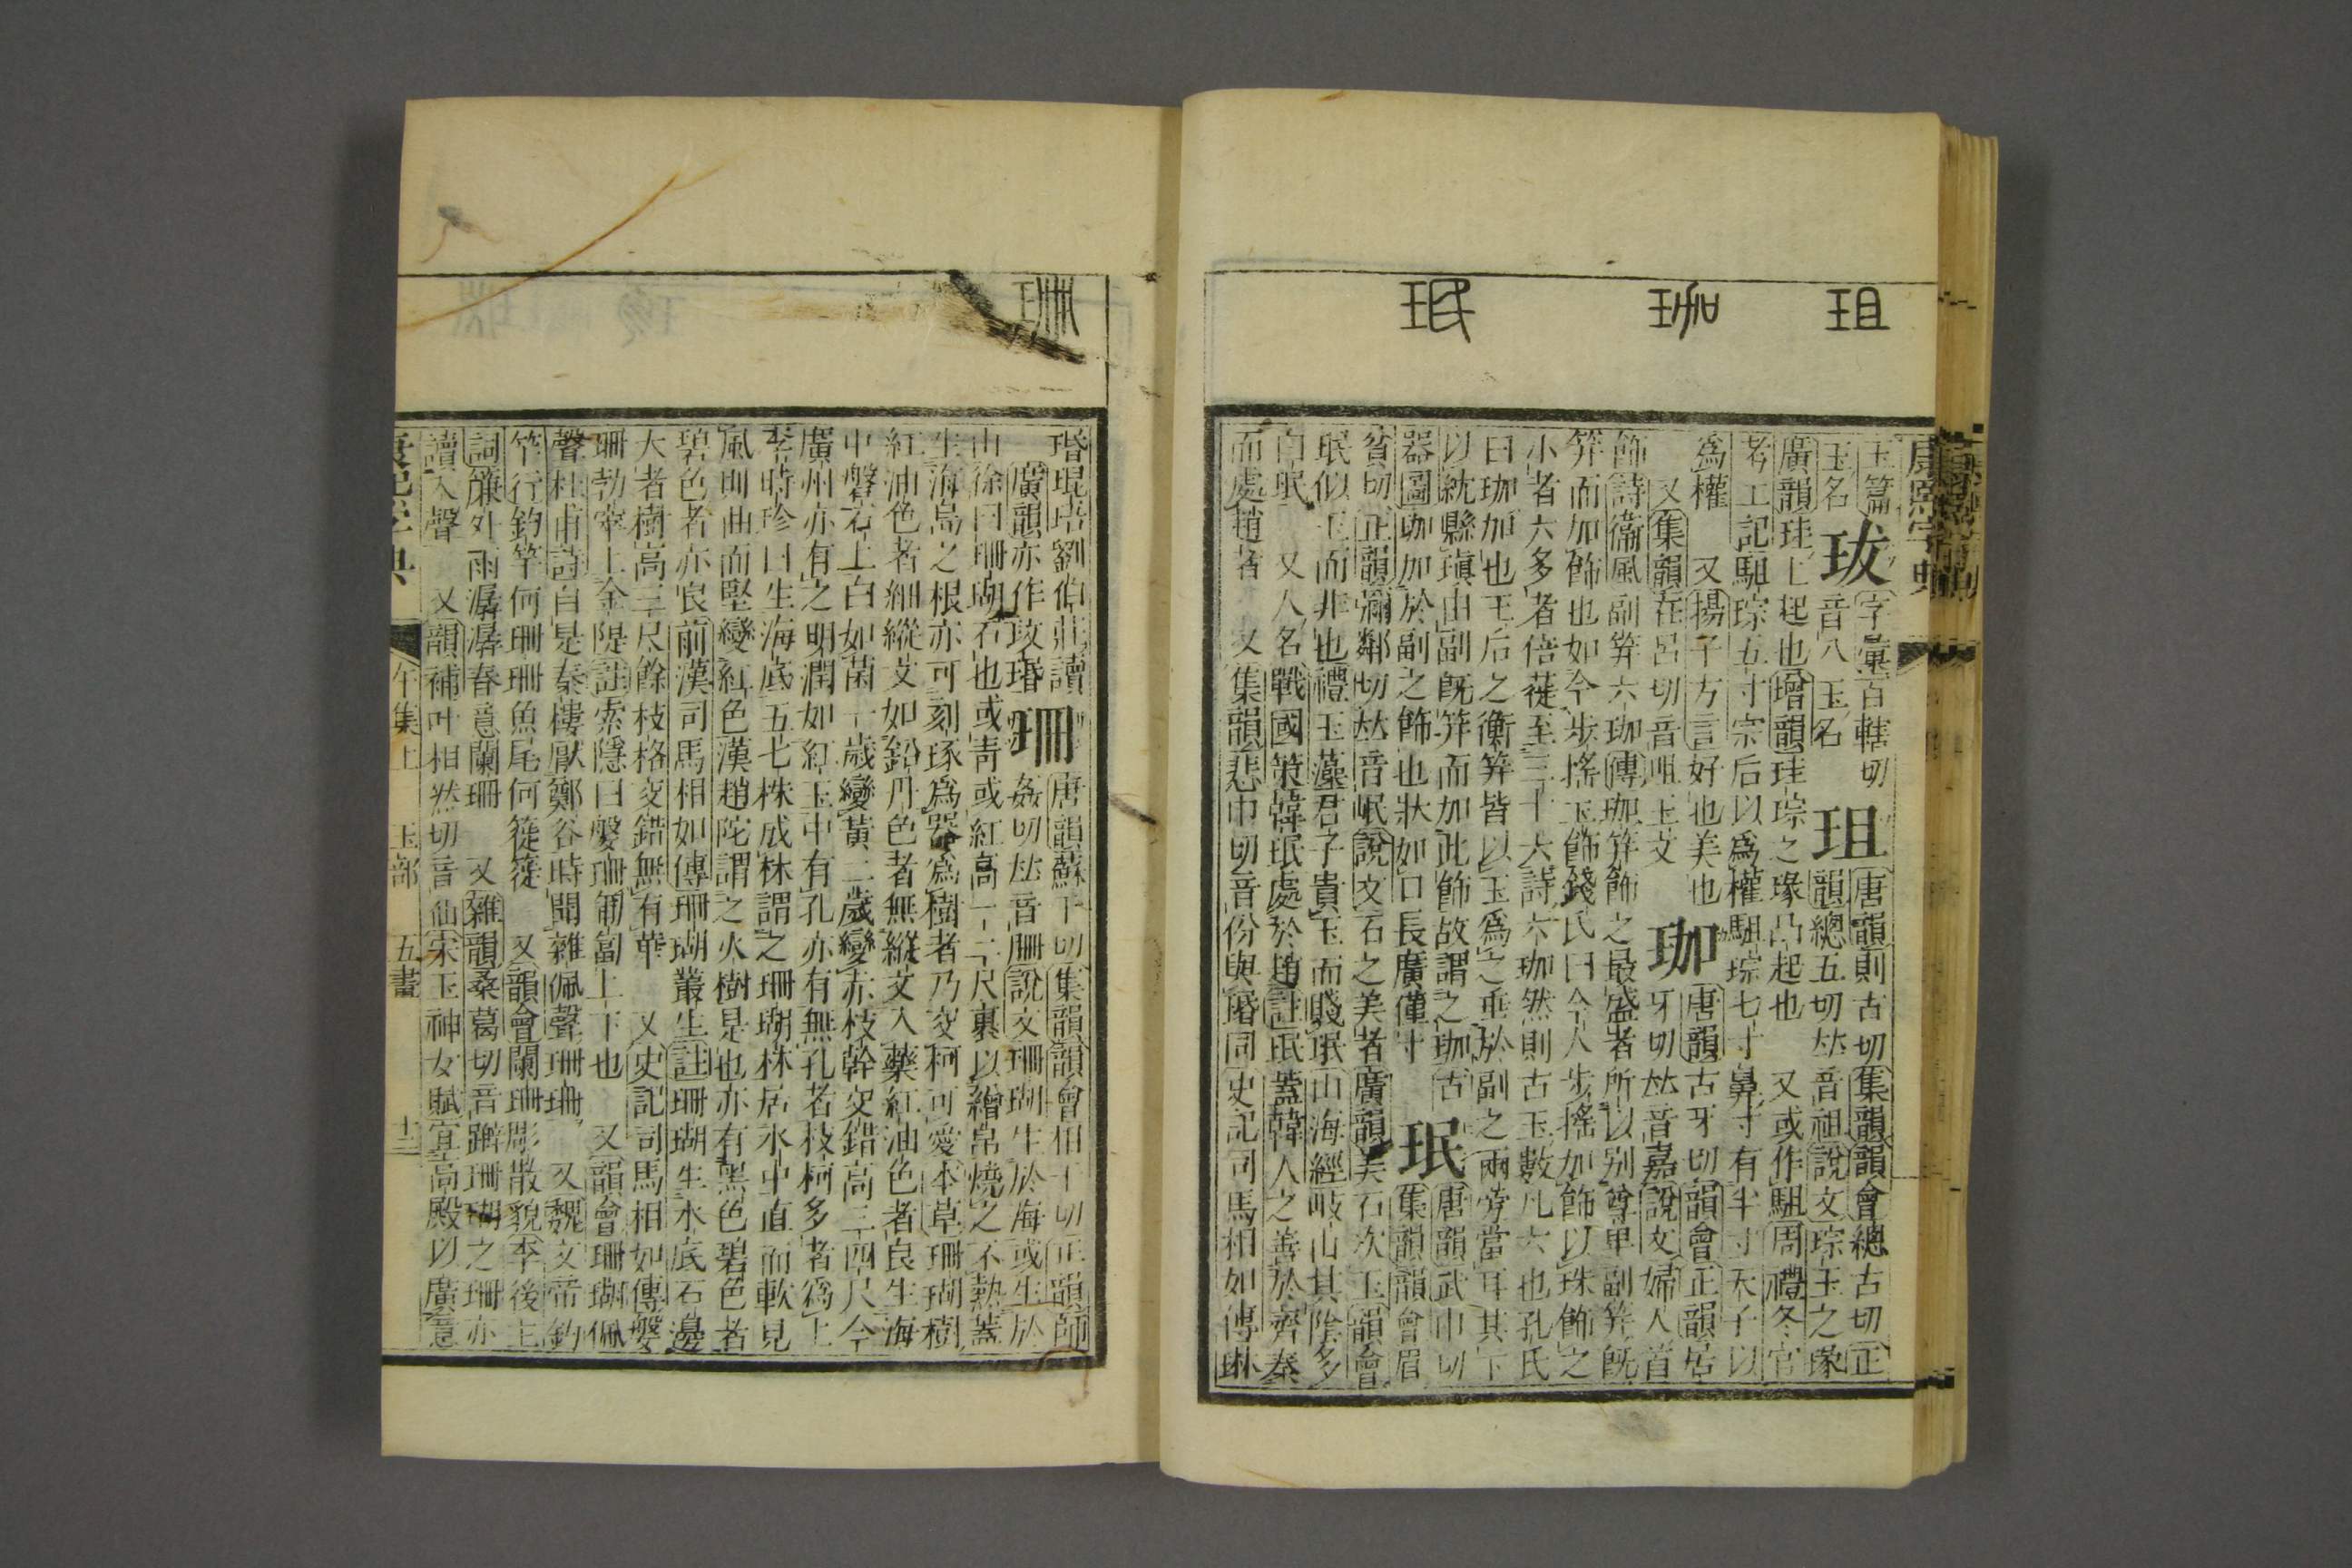 珇
珈
珉
康熙字典
玉篇
玉名
珬
字彙百轄切
音八玉名
珇
唐韻則古切集韻韻會總古切正
韻總五切𠀤音祖說文琮玉之瑑
廣韻珪上起也增韻珪琮之瑑凸起也 又或作駔周禮冬官
考工記駔琮五寸宗后以爲權駔琮七寸鼻寸有半寸天子以
爲權 又揚子方言好也美也
又集韻在呂切音咀玉文
珈
唐韻古牙切韻會正韻居
牙切𠀤音嘉說文婦人首
飾詩衞風副笄六珈傳珈笄飾之最盛者所以別尊𤰞副笄旣
笄而加飾也如今步搖玉飾錢氏曰今人步搖加飾以珠飾之
小者六多者倍蓰至三十六詩六珈然則古玉數凡六也孔氏
曰珈加也王后之衡笄皆以玉爲之垂於副之兩旁當耳其下
以紞縣瑱由副旣笄而加此飾故謂之珈古
器圖珈加於副之飾也狀如口長廣僅寸
珉
唐韻武巾切
集韻韻會眉
貧切正韻彌鄰切𠀤音岷說文石之美者廣韻美石次玉韻會
珉似玉而非也禮玉藻君子貴玉而賤珉山海經岐山其陰多
白珉 又人名戰國策韓珉處於趙註珉蓋韓人之善於齊秦
而處趙者 又集韻悲巾切音份與㻞同史記司馬相如傳琳
珊
瑉琨珸劉伯莊讀
廣韻亦作玟瑉
珊
唐韻蘇干切集韻韻會相干切正韻師
姦切𠀤音刪說文珊瑚生於海或生於
山徐曰珊瑚石也或靑或紅高一二尺裹以繒帛燒之不熱蓋
生海島之根亦可刻琢爲器爲樹者乃交柯可愛本草珊瑚樹
紅油色者細縱文如鉛丹色者無縱文入藥紅油色者良生海
中盤石上白如菌一歲變黃二歲變赤枝幹交錯高三四尺今
廣州亦有之明潤如紅玉中有孔亦有無孔者枝柯多者爲上
李時珍曰生海底五七株成林謂之珊瑚林居水中直而軟見
風則曲而堅變紅色漢趙陀謂之火樹是也亦有黑色碧色者
碧色者亦良前漢司馬相如傳珊瑚叢生註珊瑚生水底石邊
大者樹高三尺餘枝格交錯無有華 又史記司馬相如傳媻
珊勃窣上金隄註索隱曰媻珊匍匐上下也 又韻會珊瑚佩
聲杜甫詩自是秦樓厭鄭谷時聞雜佩聲珊珊 又魏文帝釣
竿行釣竿何珊珊魚尾何簁簁 又韻會闌珊彫散貌李後主
詞簾外雨潺潺春意闌珊 又雜韻桑葛切音躃珊瑚之珊亦
讀入聲 又韻補叶相然切音仙宋玉神女賦宜高殿以廣意
康熙字典 午集上 玉部 五畫 十三